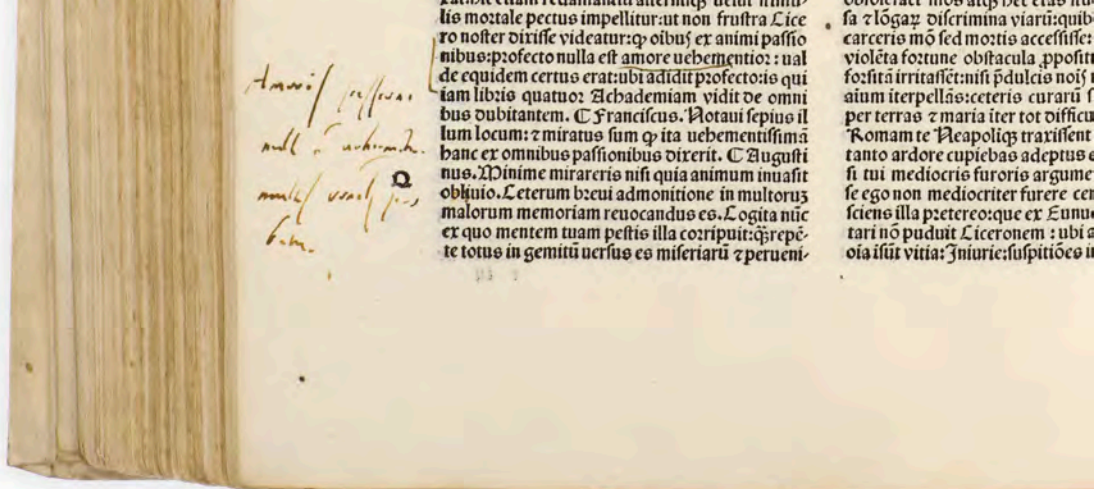 lis mortale pectus impellitur:ut non frustra Cice
ro noster dixisse videatur:ꝙ oibus ex animi passio
nibus:profecto nulla est amore uehementior: ual
de equidem certus erat:ubi adidit profecto:is qui
iam libris quatuor Achademiam vidit de omni
bus dubitantem. ℂ Franciscus. Notaui sepius il
lum locum: ⁊ miratus sum ꝙ ita uehementissimā
hanc ex omnibus passionibus dixerit. ℂ Augusti
nus. Minime mirareris nisi quia animum inuasit
obliuio. Ceterum breui admonitione in multoruꝫ
malorum memoriam reuocandus es. Cogita nūc
ex quo mentem tuam pestis illa corripuit:ꝗ̃ꝫ repē-
te totus in gemitū uersus es miseriarū ⁊ perueni-
sa ⁊ lōgaꝝ discrimina viarū:quib
carceris mō sed mortis accessisse:
violēta fortune obstacula ꝓpositi
forsitā irritassēt:nisi p̄dulcis noīs
aium iterpellās:ceteris curarū
per terras ⁊ maria iter tot difficu
Romam te Neapoliqꝫ traxissent
tanto ardore cupiebas adeptus e
si tui mediocris furoris argume
se ego non mediocriter furere cer
sciens illa pretereo:que ex Eunu
tari nō puduit Ciceronem : ubi a
oia isūt vitia: Iniurie:suspitiōes i
Amoris